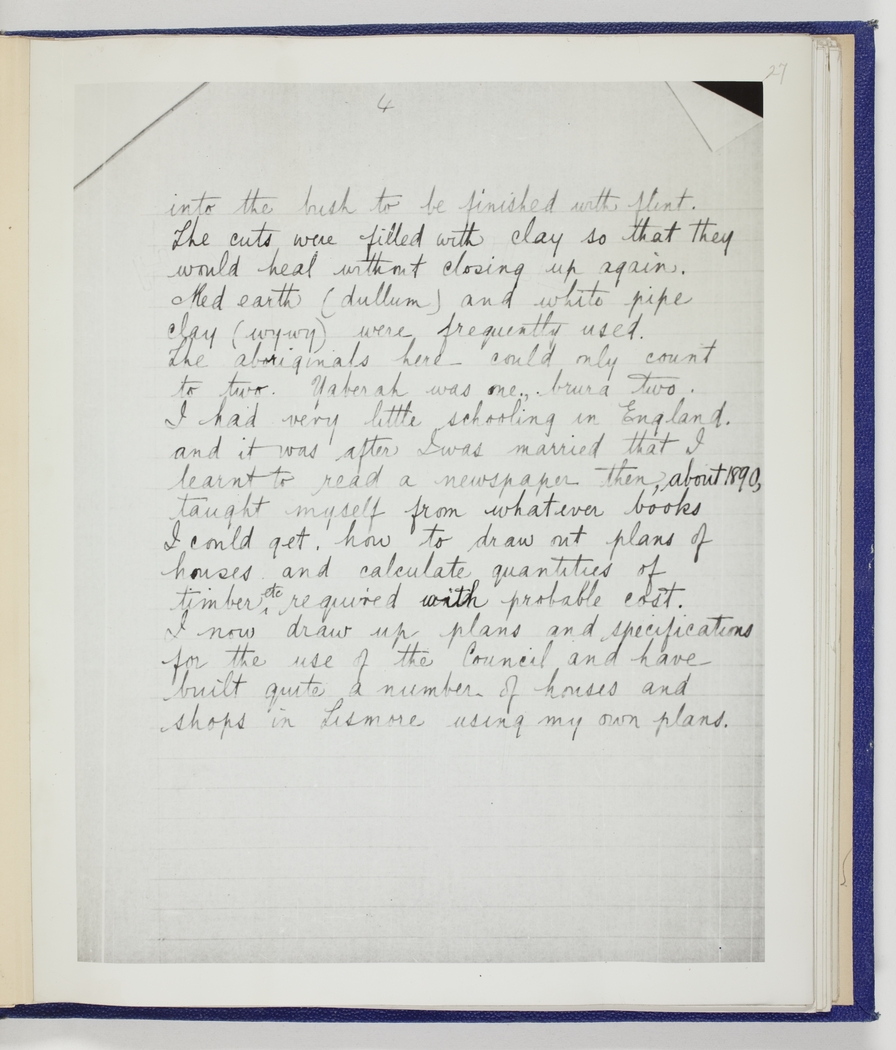 27
4
into the bush to be finished with flint.
The cuts were filled with clay so that they
would heal without closing up again.
Red earth (dullum) and white pipe
clay (wywy) were frequently used.
The aboriginals here could only count
to two. Yaberah was one, brura two.
I had very little schooling in England.
and it was after I was married that I
learnt to read a newspaper then, about 1890,
taught myself from whatever books
I could get, how to draw out plans of
houses and calculate quantities of
timber, etc required with probable cost.
I now draw up plans and specifications
for the use of the Council and have
built quite a number of houses and
shops in Lismore using my own plans.